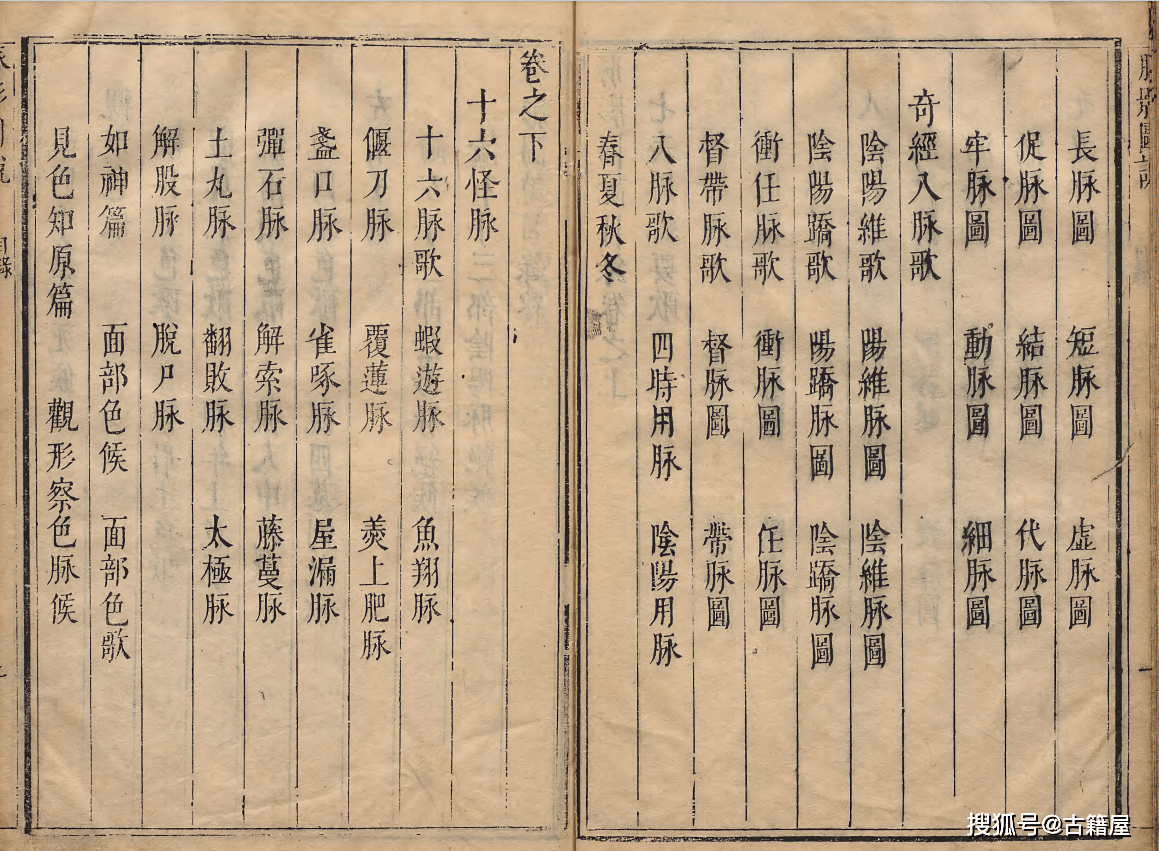 長脉圖　短脉圖　虛脉圖
促脉圖　結脉圖　代脉圖
牢脉圖　動脉圖　細脉圖
奇經八脉歌
陰陽維歌　陽維脉圖　陰維脉圖
陰陽蹻歌　陽蹻脉圖　陰蹻脉圖
衝任脉歌　衝脉圖　任脉圖
督帶脉歌　督脉圖　帶脉圖
八脉歌　四時用脉　陰陽用脉
春夏秋冬
卷之下
十六怪脉
十六脉歌　蝦遊脉　魚翔脉
偃刀脉　覆蓮脉　羙上肥脉
盞口脉　雀啄脉　屋漏脉
彈石脉　解索脉　藤蔓脉
土丸脉　翻敗脉　太極脉
解股脉　脫尸脉
如神篇　面部色候　面部色歌
見色知原篇　觀形察色脉候
目錄
搜狐号@古籍屋